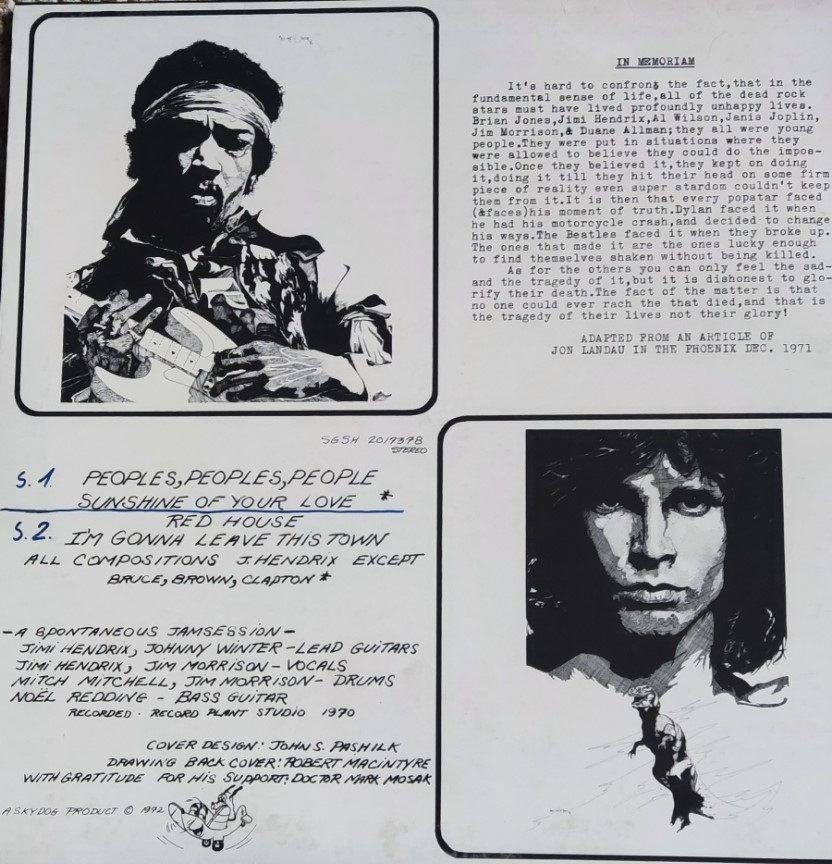 IN MEMORIAM
It's hard to confront the fact,that in the
fundamental sense of life,all of the dead rock
stars must have lived profoundly unhappy lives.
Brian Jones,Jimi Hendrix,Al Wilson,Janis Joplin,
Jim Morrison,& Duane Allman;they all were young
people.They were put in situations where they
were allowed to believe they could do the impos-
sible.Once they believed it,they kept on doing
it,doing it till they hit their head on some firm
piece of reality even super stardom couldn't keep
them from it.It is then that every popstar faced
(&faces)his moment of truth.Dylan faced it when
he had his motorcycle crash,and decided to change
his ways.The Beatles faced it when they broke up.
The ones that made it are the ones lucky enough
to find themselves shaken without being killed.
As for the others you can only feel the sad-
and the tragedy of it,but it is dishonest to glo-
rify their death.The fact of the matter is that
no one could ever rach the that died,and that is
the tragedy of their lives not their glory!
ADAPTED FROM AN ARTICLE OF
JON LANDAU IN THE PHOENIX DEC. 1971
SGSH 2017378
STEREO
S. 1. PEOPLES, PEOPLES, PEOPLE
SUNSHINE OF YOUR LOVE *
S. 2. RED HOUSE
I'M GONNA LEAVE THIS TOWN
ALL COMPOSITIONS J. HENDRIX EXCEPT
BRUCE, BROWN, CLAPTON *
-A SPONTANEOUS JAMSESSION-
JIMI HENDRIX, JOHNNY WINTER-LEAD GUITARS
JIMI HENDRIX, JIM MORRISON-VOCALS
MITCH MITCHELL, JIM MORRISON- DRUMS
NOËL REDDING - BASS GUITAR
RECORDED · RECORD PLANT STUDIO 1970
COVER DESIGN: JOHN S. PASHILK
DRAWING BACK COVER: ROBERT MACINTYRE
WITH GRATITUDE FOR HIS SUPPORT: DOCTOR MARK MOSAK
A SKYDOG PRODUCT © 1972